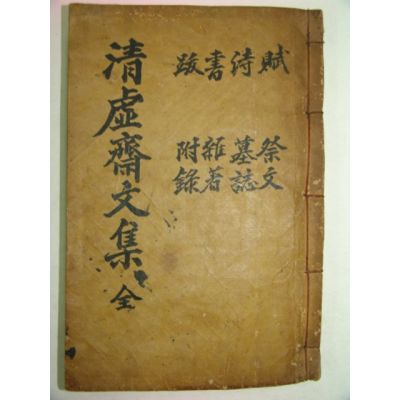 賦 祭文
詩 墓誌
書 雜著
跋 附錄
清虛齋文集 全